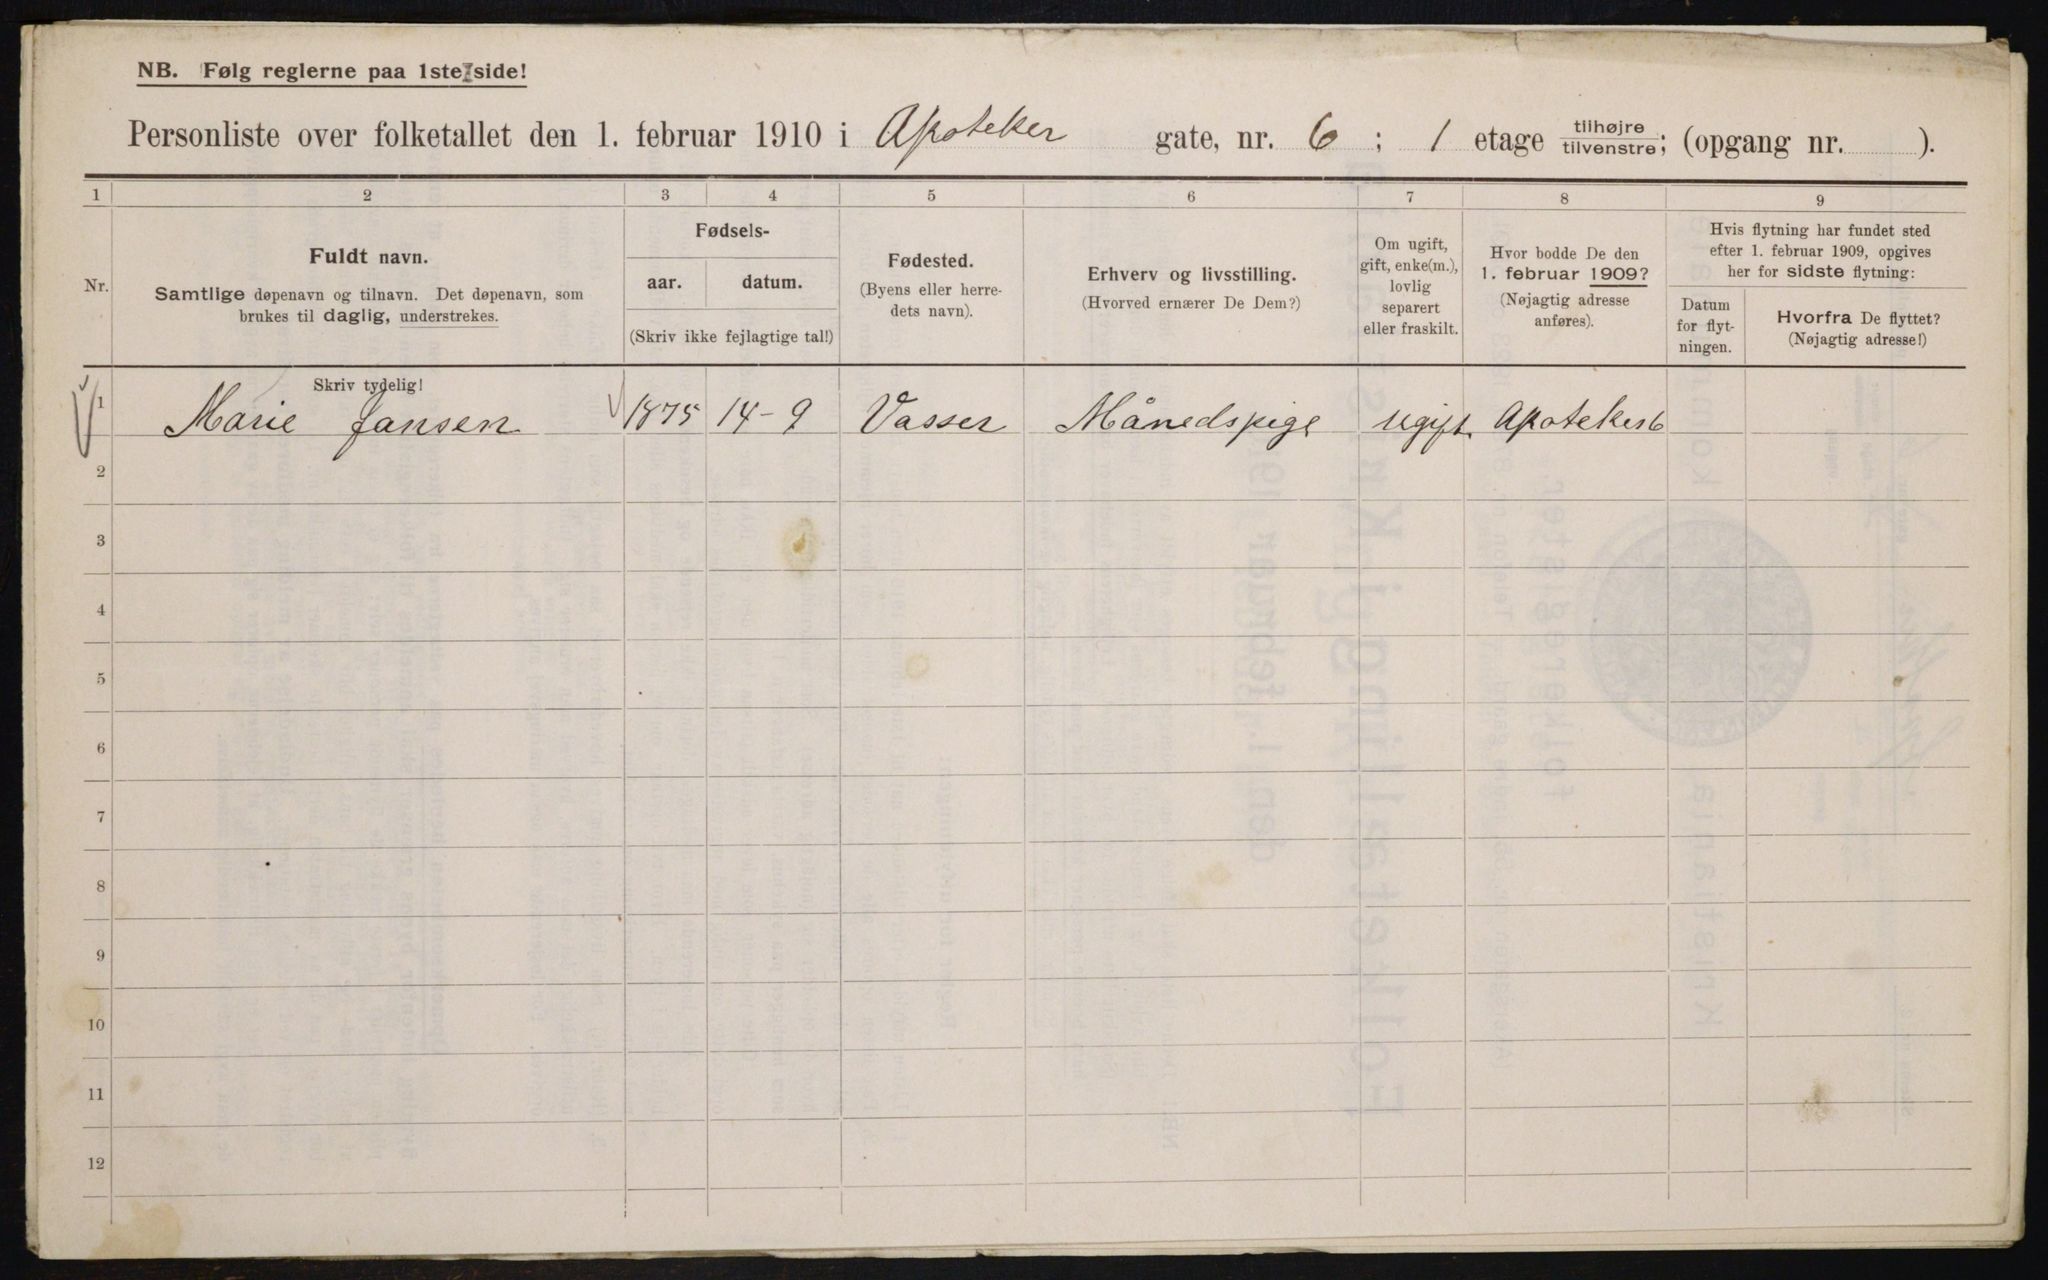 NB. Følg reglerne paa 1ste side!
Personliste over folketallet den 1. februar 1910 i Apoteker gate, nr. 6 ; 1 etage tilhøjre tilvenstre; (opgang nr. ).
1 2 3 4 5 6 7 8 9
Nr.
Fuldt navn.
Samtlige døpenavn og tilnavn. Det døpenavn, som
brukes til daglig, understrekes.
Fødsels-
aar. datum.
(Skriv ikke fejlagtige tal!)
Fødested.
(Byens eller herre-
dets navn).
Erhverv og livsstilling.
(Hvorved ernærer De Dem?)
Om ugift,
gift, enke(m.),
lovlig
separert
eller fraskilt.
Hvor bodde De den
1. februar 1909?
(Nøjagtig adresse
anføres).
Hvis flytning har fundet sted
efter 1. februar 1909, opgives
her for sidste flytning:
Datum
for flyt-
ningen.
Hvorfra De flyttet?
(Nøjagtig adresse!)
Skriv tydelig!
1 Marie Jansen 1875 14-9 Vasser Månedspige ugift Apoteker 6
2
3
4
5
6
7
8
9
10
11
12